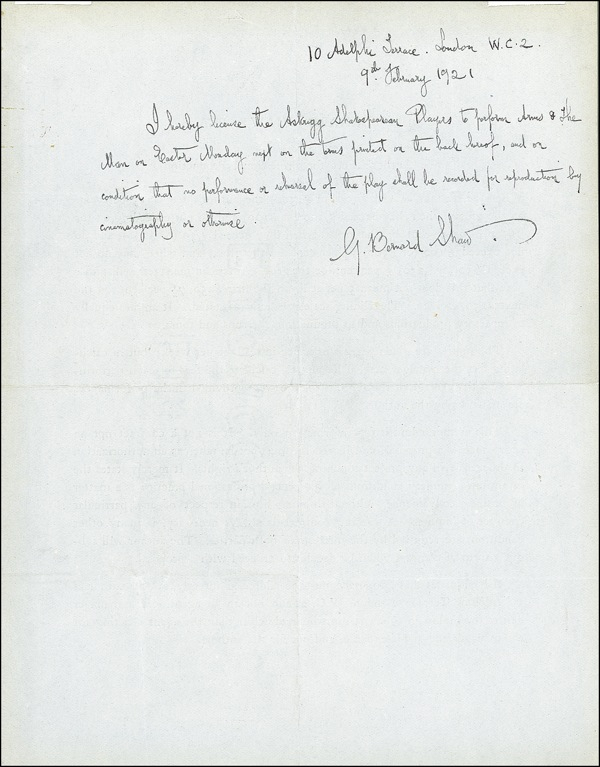 10 Adelphi Terrace. London W.C.2.
9th February 1921
I hereby license the Askrigg Shakespearean Players to perform Arms & The
Man on Easter Monday next on the terms printed on the back hereof, and on
condition that no performance or rehearsal of the play shall be recorded for reproduction by
cinematography or otherwise.
G. Bernard Shaw